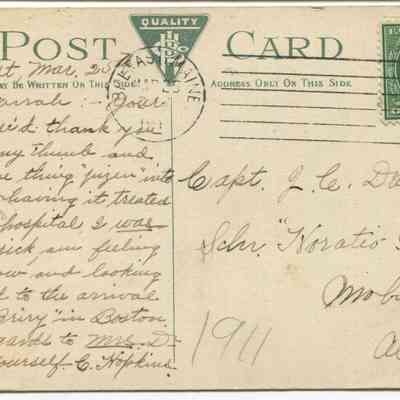 POST CARD
QUALITY
AY BE WRITTEN ON THIS SIDE
ADDRESS ONLY ON THIS SIDE
BELFAST, MAINE
Mar. 25
arrah :- Your
e'd thank you
my thumb and
e thing "pizen" into
having it treated
hospital I was
sick, am feeling
ow, and looking
d to the arrival
"Briry" in Boston
gards to Mrs. D-
yourself. C. Hopkins.
Capt. J. C. D
Schr. "Horatio
Mob
1911